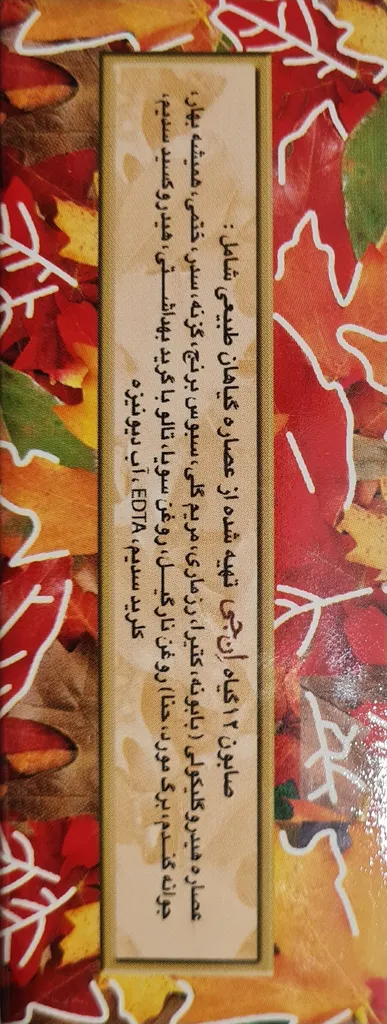 صابون ۱۲ گیاه اِن‌جی تهیه شده از عصاره گیاهان طبیعی شامل :
عصاره هیدروگلیکولی (بابونه، کتیرا، رزماری، مریم گلی، سبوس برنج، گزنه، سدر، ختمی، همیشه بهار،
جوانه گندم، برگ مورد، حنا) روغن نارگیل، روغن سویا، تالو با گرید بهداشتی، هیدروکسید سدیم،
کلرید سدیم، EDTA ، آب دیونیزه